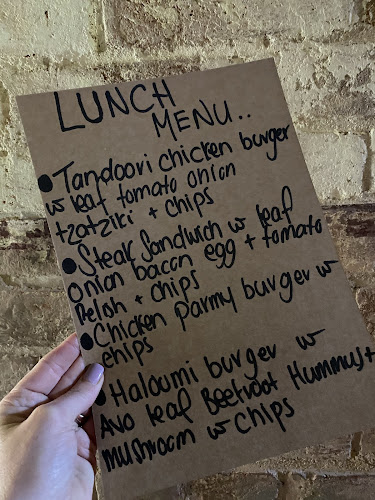 LUNCH
MENU..
• Tandoori chicken burger
w leaf tomato onion
+zatziki + chips
• Steak Sandwich w leaf
onion bacon egg + tomato
Relsh + chips
• Chicken Parmy burger w
chips
• Haloumi burger w
Avo leaf Beetroot Hummus +
mushroom w chips